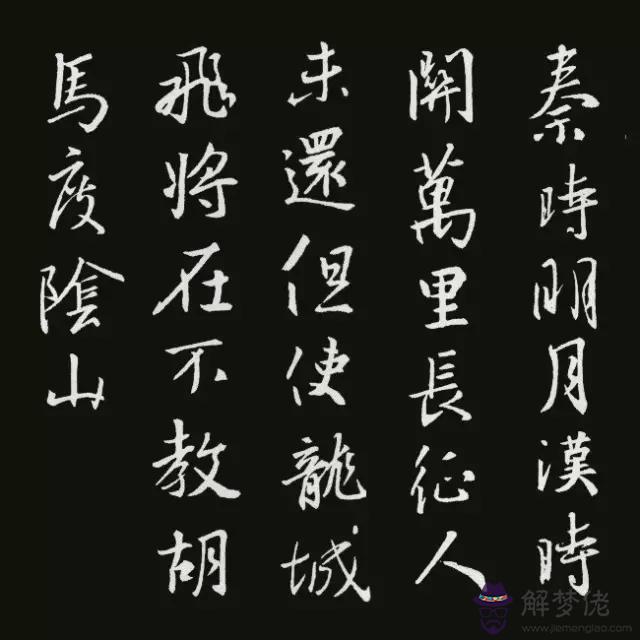 秦時明月漢時
關萬里長征人
未還但使龍城
飛將在不教胡
馬度陰山
解梦佬
www.jiemenglao.com